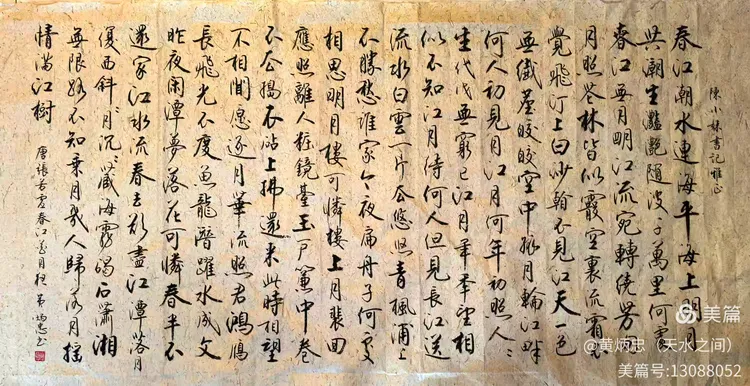 陳小妹書記雅正
春江潮水連海平海上明月
共潮生灧灧隨波千萬里何處
春江無月明江流宛轉繞芳甸
月照花林皆似霰空裏流霜不
覺飛汀上白沙看不見江天一色
無纖塵皎皎空中孤月輪江畔
何人初見月江月何年初照人〻
生代代無窮已江月年年望相
似不知江月待何人但見長江送
流水白雲一片去悠悠青楓浦上
不勝愁誰家今夜扁舟子何處
相思明月樓可憐樓上月裴回
應照離人粧鏡臺玉戶簾中卷
不去搗衣砧上拂還來此時相望
不相聞願逐月華流照君鴻雁
長飛光不度魚龍潛躍水成文
昨夜閑潭夢落花可憐春半不
還家江水流春去欲盡江潭落月
復西斜〻月沉〻藏海霧碣石瀟湘
無限路不知乘月幾人歸落月搖
情滿江樹
唐張若虛春江花月夜 炳忠書
美篇
@黄炳忠（天水之间）
美篇号:13088052